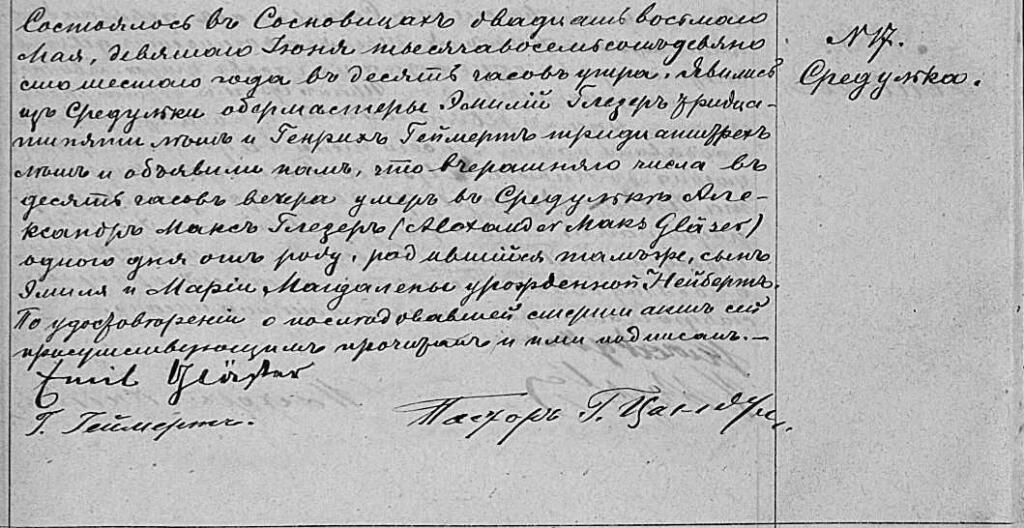 Состоялось въ Сосновицахъ двадцать восьмаго
Мая, девятаго Іюня тысяча восемьсотъ девяно
сто шестаго года въ десять часовъ утра. Явились
изъ Средулки обермастеры Эмилій Глезеръ тридца-
типяти лѣтъ и Генрихъ Геймертъ тридцатитрехъ
лѣтъ и объявили намъ, что вчерашняго числа въ
десять часовъ вечера умеръ въ Средулкѣ Але-
ксандръ Максъ Глезеръ (Alexander Maks Gläser)
одного дня отъ роду, родившійся тамъже, сынъ
Эмиля и Маріи Магдалены урожденной Нейбертъ.
По удостовѣреніи о послѣдовавшей смерти актъ сей
присутствующимъ прочитанъ и ими подписанъ. —
Emil Gläser
Г. Геймертъ.
Пасторъ Г.
N 17.
Средулка.